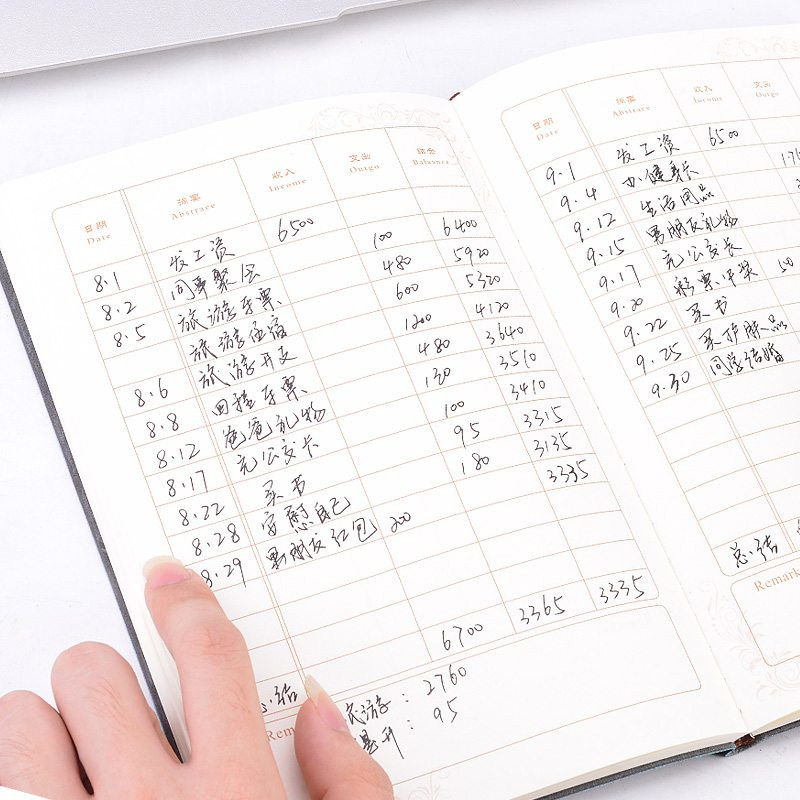 日期 摘要 收入 支出 结余
Date Abstrace Income Outgo Balannce
8.1 发工资 6500
8.2 同事聚会 100 6400
8.5 旅游车票 480 5920
旅游住宿 600 5320
旅游开支 1200 4120
8.6 回程车票 480 3640
8.8 爸爸礼物 130 3510
8.12 充公交卡 100 3410
8.17 买书 95 3315
8.22 安慰自己 180 3135
8.28 男朋友红包 200 3335
8.29
结 6700 3365 3335
Rem
游: 2760
升: 95
日期 摘要 收入 支出
Date Abstrace Income Outgo
9.1 发工资 6500
9.4 办健身卡 175
9.12 生活用品
9.15 男朋友礼物
9.17 充公交卡
9.20 彩票中奖 50
9.22 买书
9.25 买护肤品
9.30 同学结婚
总结
Remark